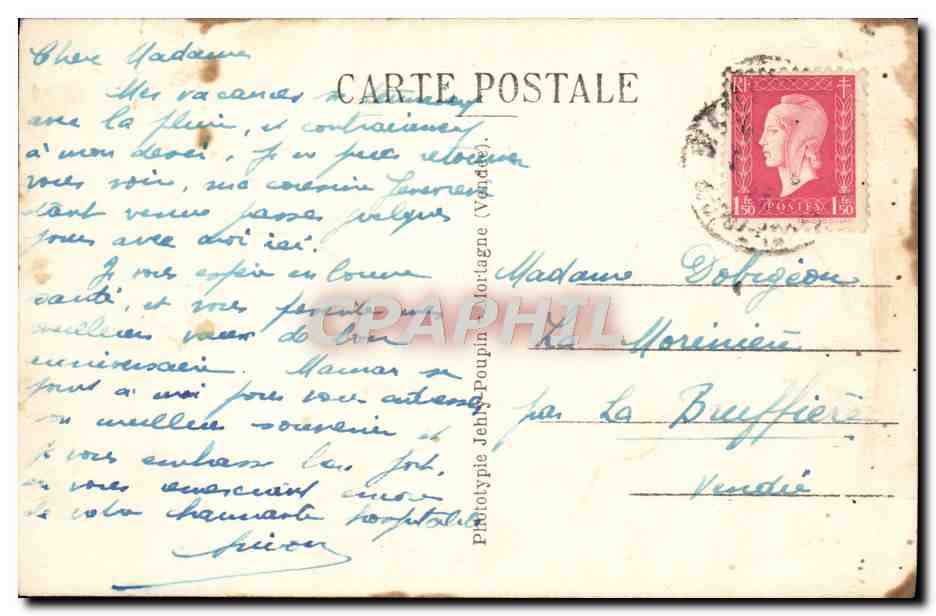 Chère Madame
Mes vacances se terminent
avec la pluie, et contrairement
à mon désir, je ne peux retourner
vous voir, ma cousine
étant venue passer quelques
jours avec moi ici.
Je vous espère en bonne
santé, et vous présente mes
meilleurs vœux de bon
anniversaire. Maman se
joint à moi pour vous adresser
son meilleur souvenir et
je vous embrasse bien fort,
en vous remerciant encore
de votre charmante hospitalité
CARTE POSTALE
RF
1 fr. 50
POSTES
1 fr. 50
Phototypie Jehly-Poupin - Mortagne (Vendée).
CPAPHIL
Madame Dobigeon
La Morinière
par La Bruffière
Vendée